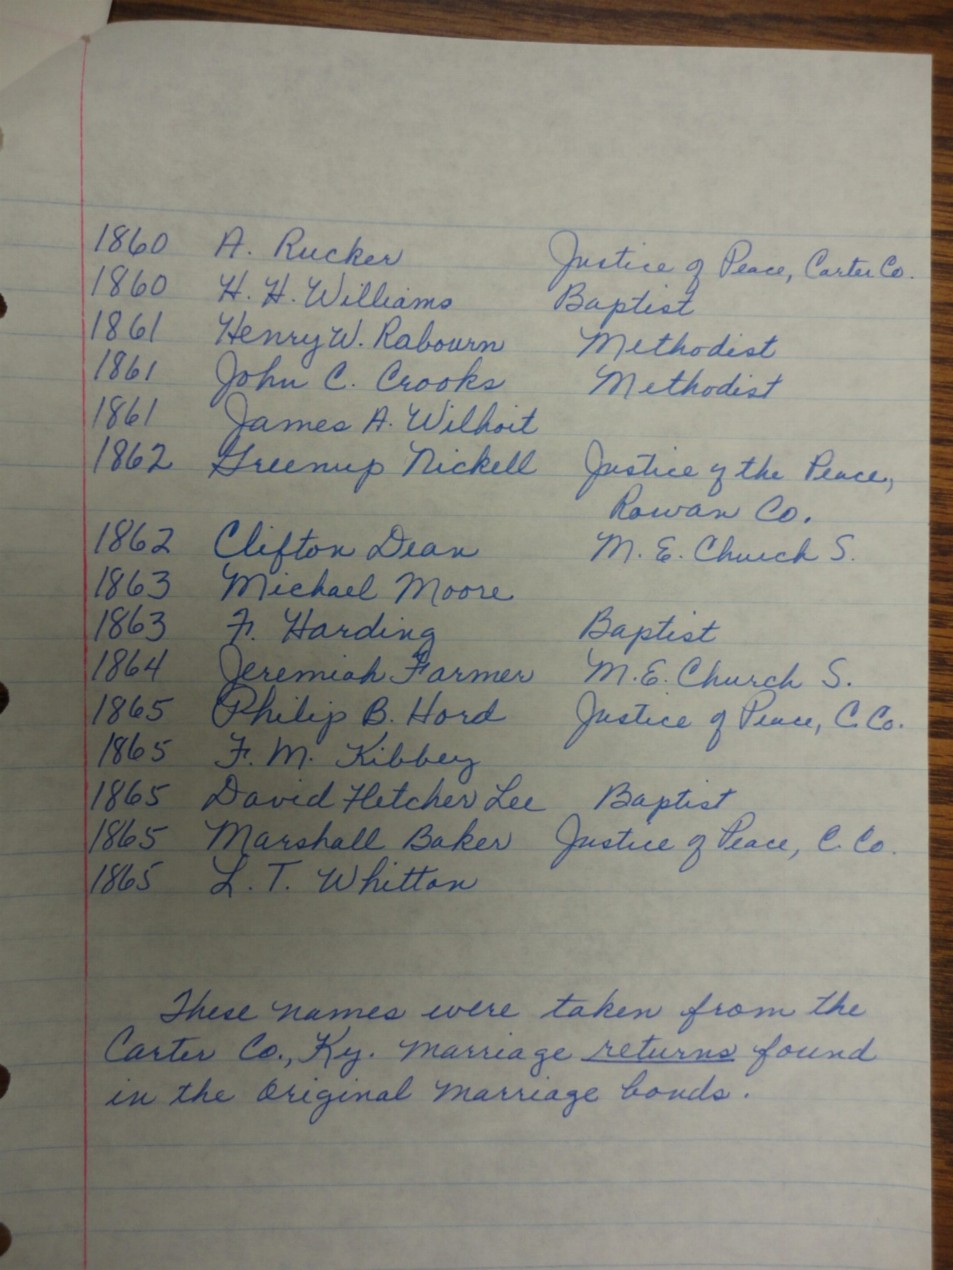 1860 A. Rucker Justice of Peace, Carter Co.
1860 H. H. Williams Baptist
1861 Henry W. Rabourn Methodist
1861 John C. Crooks Methodist
1861 James A. Wilhoit
1862 Greenup Nickell Justice of the Peace,
Rowan Co.
1862 Clifton Dean M. E. Church S.
1863 Michael Moore
1863 F. Harding Baptist
1864 Jeremiah Farmer M. E. Church S.
1865 Philip B. Hord Justice of Peace, C. Co.
1865 F. M. Kibbey
1865 David Fletcher Lee Baptist
1865 Marshall Baker Justice of Peace, C. Co.
1865 L. T. Whitton
These names were taken from the
Carter Co., Ky. marriage returns found
in the original marriage bonds.